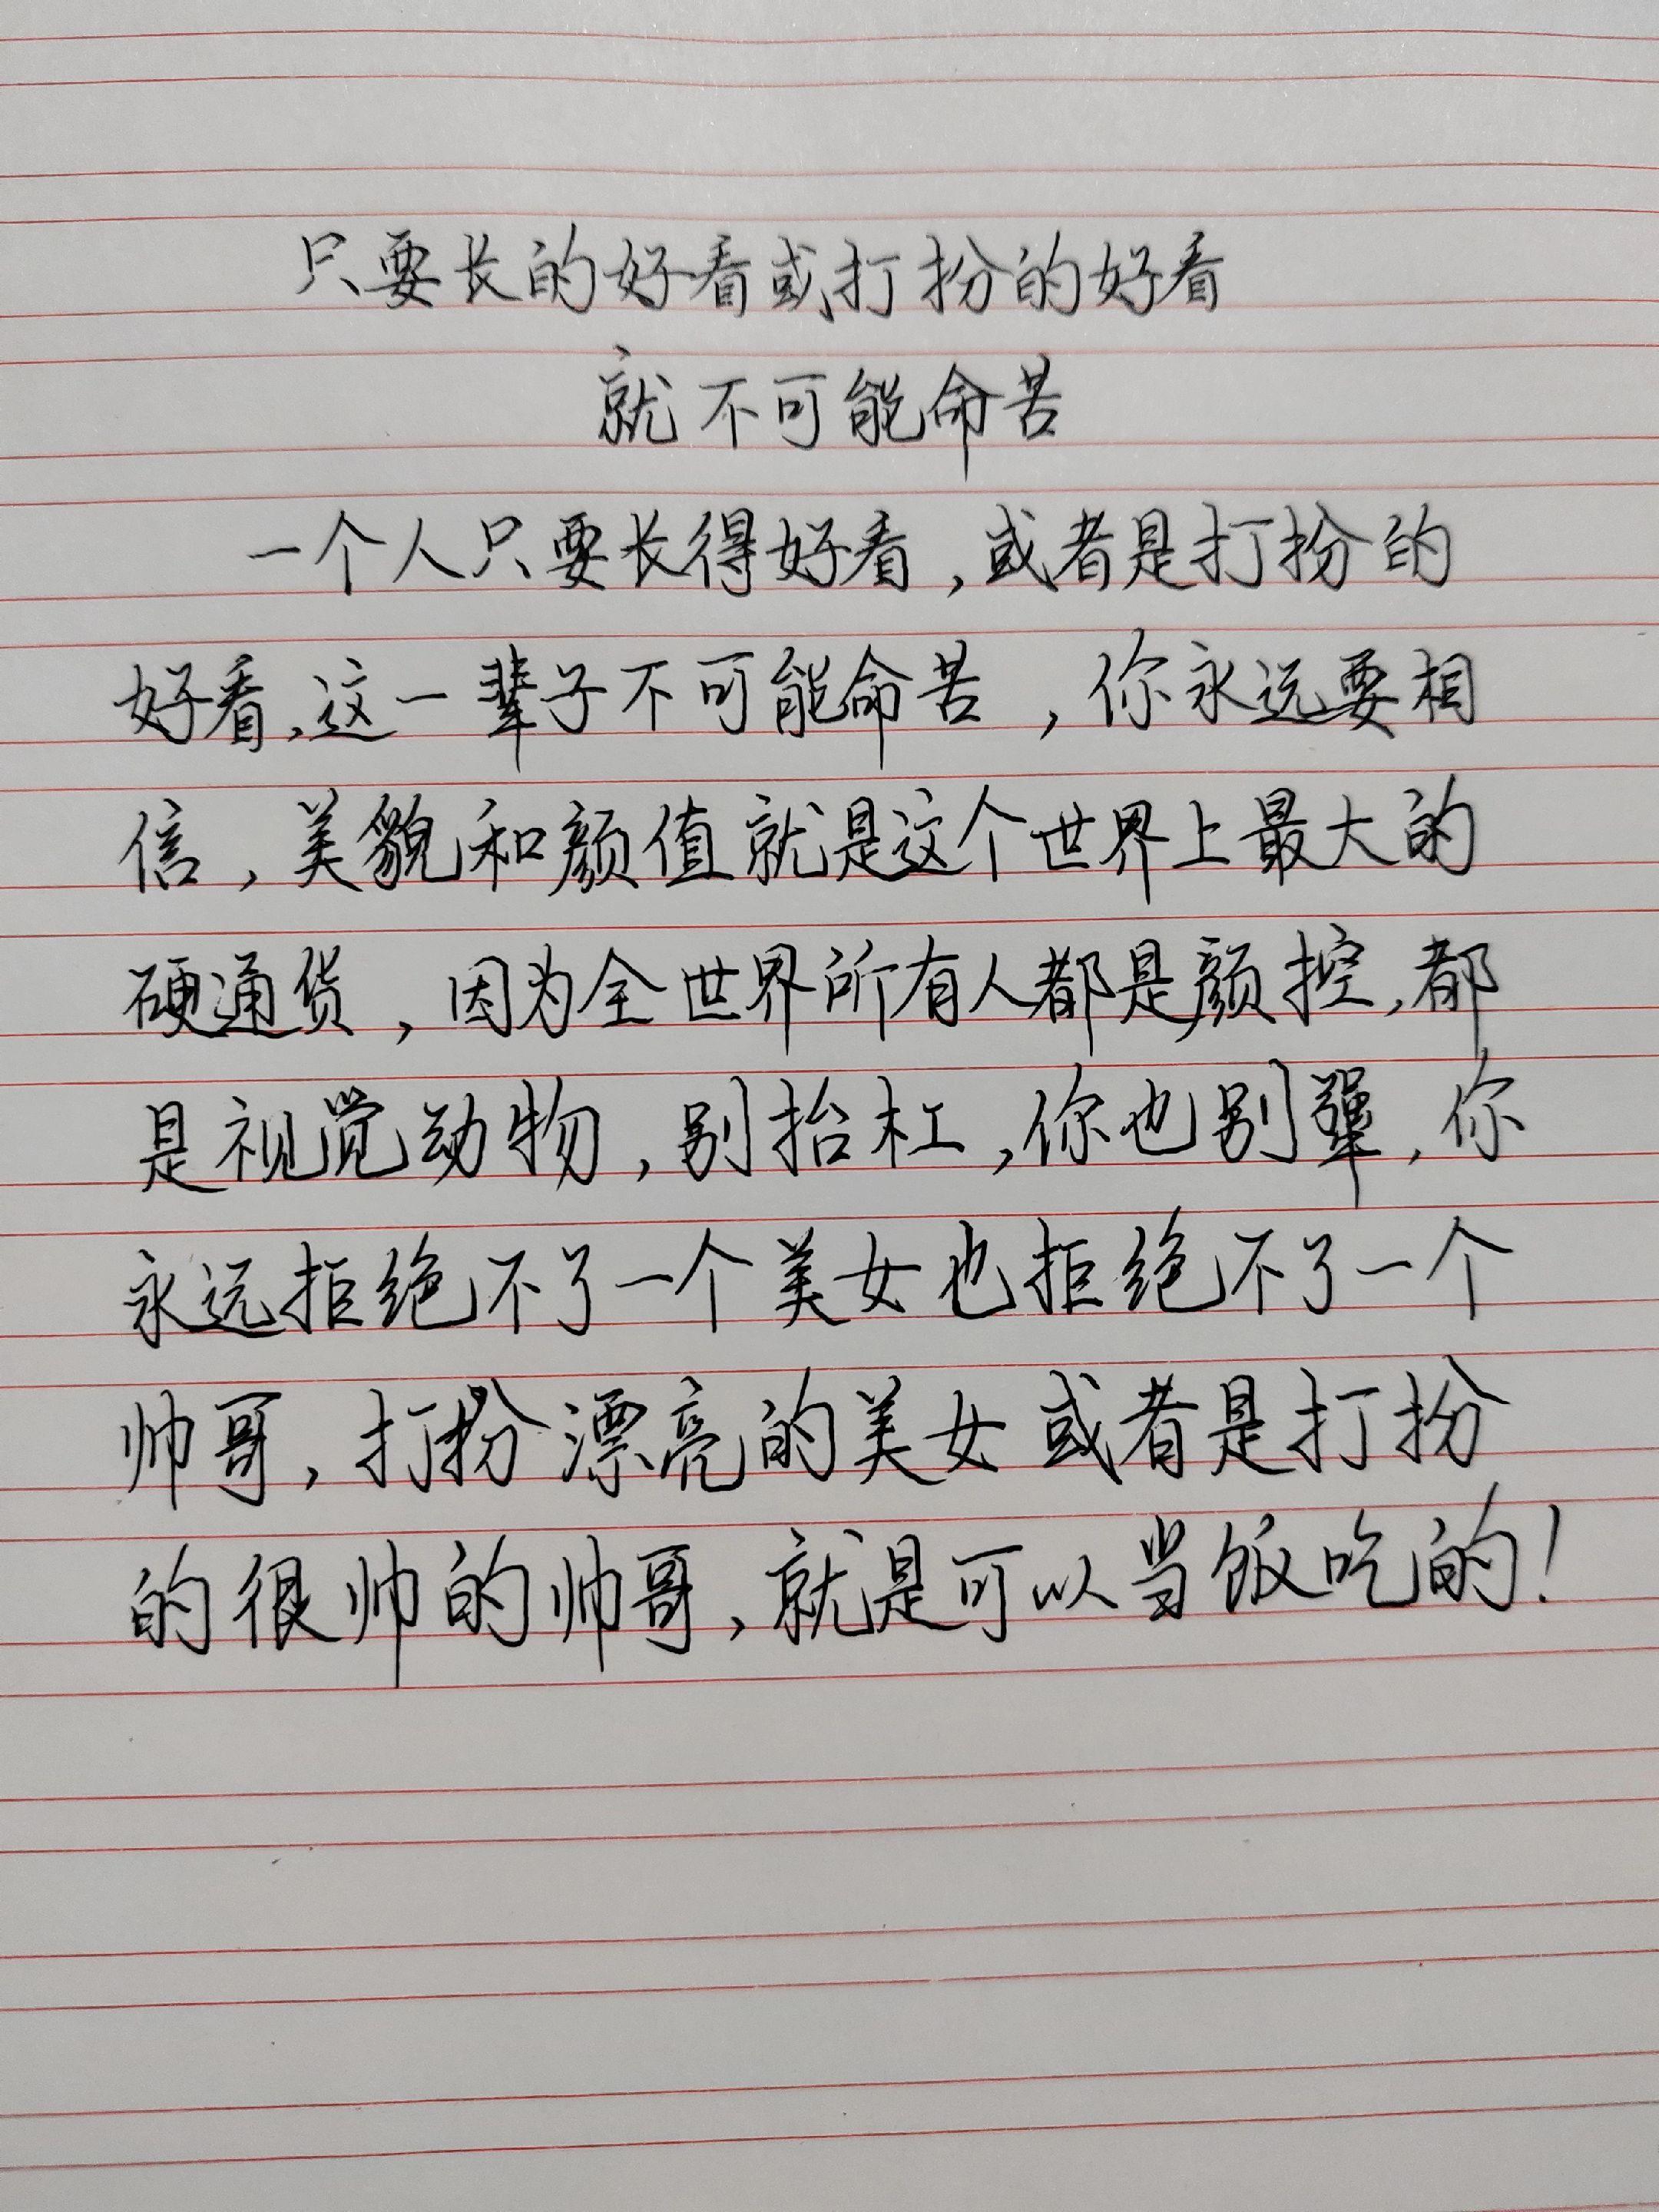 只要长的好看或打扮的好看
就不可能命苦
一个人只要长得好看,或者是打扮的
好看,这一辈子不可能命苦,你永远要相
信,美貌和颜值就是这个世界上最大的
硬通货,因为全世界所有人都是颜控,都
是视觉动物,别抬杠,你也别犟,你
永远拒绝不了一个美女也拒绝不了一个
帅哥,打扮漂亮的美女或者是打扮
的很帅的帅哥,就是可以当饭吃的!